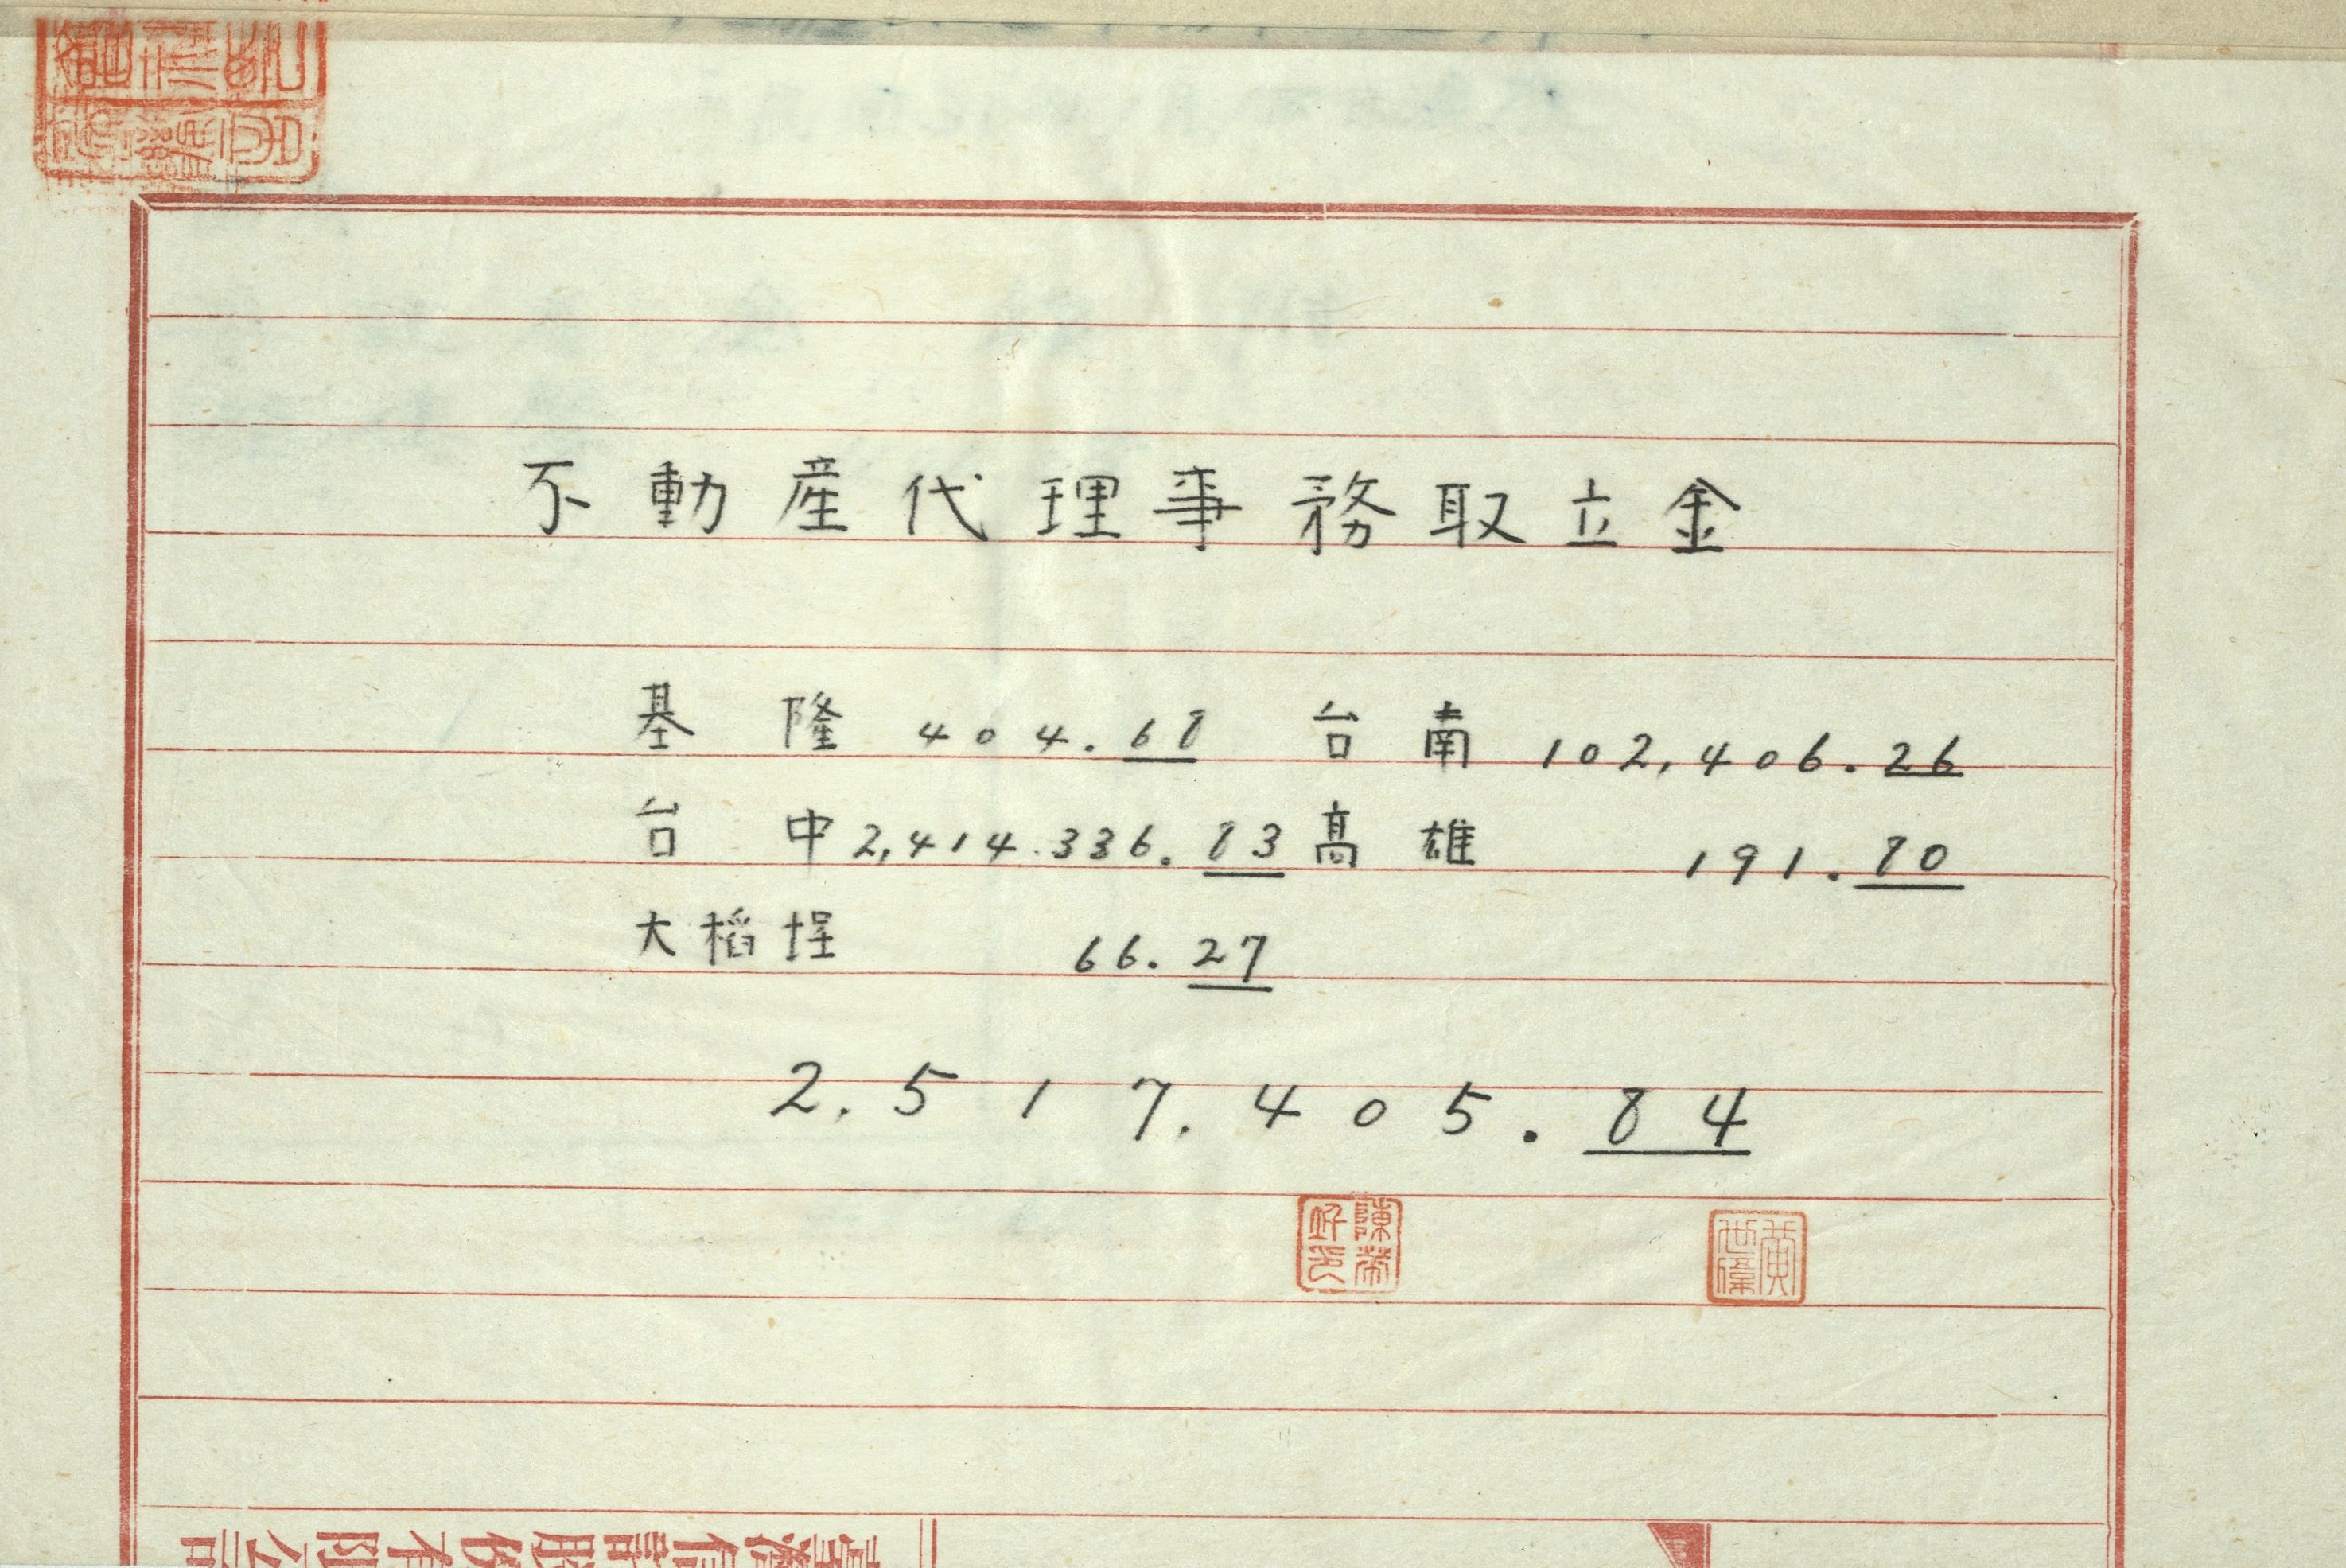 不動産代理事務取立金
基隆 404.68 台南 102,406.26
台中 2,414.336.83 高雄 191.80
大稻埕 66.27
2.517.405.84
陳榮
黃世
臺灣信託股份有限公司